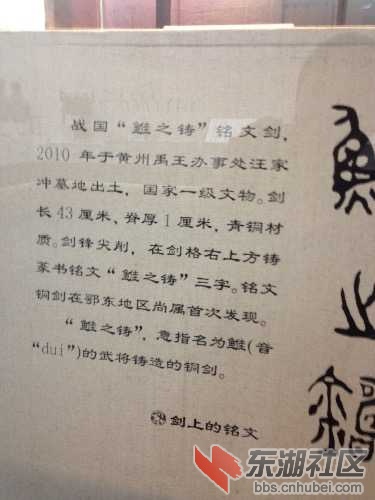 战国“鯥之铸”铭文剑，
2010 年于黄州禹王办事处汪家
冲墓地出土，国家一级文物。剑
长 43 厘米、脊厚 1 厘米，青铜材
质。剑锋尖削，在剑格右上方铸
篆书铭文“之铸”三字。铭文
铜剑在鄂东地区尚属首次发现。
“之铸”，意指名为(音
“dui”)的武将铸造的铜剑。
剑上的铭文
东湖社区
bbs.cnhubei.com